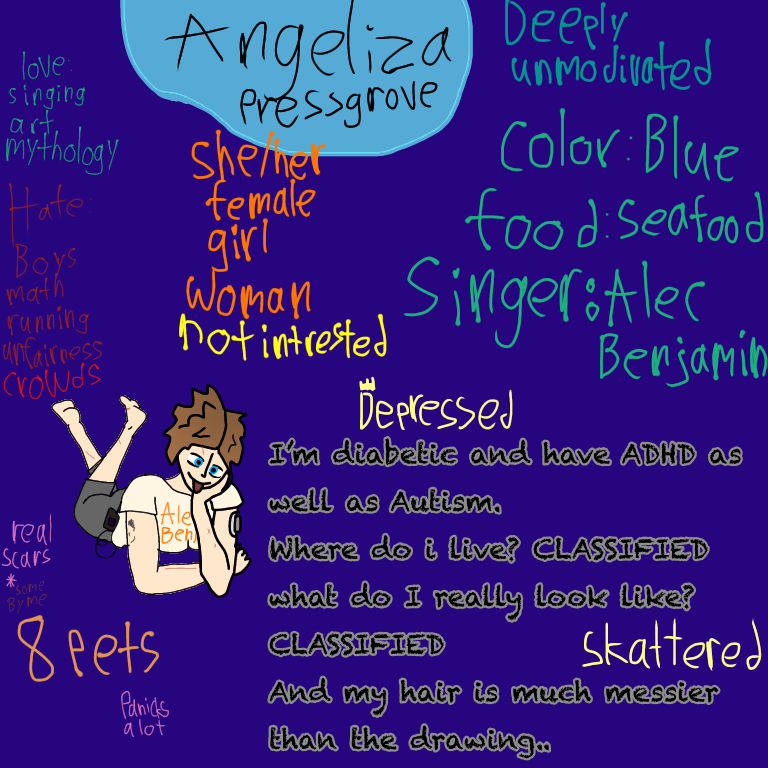 Angeliza
pressgrove
love:
singing
art
mythology
Hate:
Boys
math
running
unfairness
crowds
she/her
female
girl
woman
not intrested
Deeply
unmodivated
Color: Blue
food: seafood
Singer: Alec
Benjamin
Depressed
I'm diabetic and have ADHD as
well as Autism.
Where do i live? CLASSIFIED
what do I really look like?
CLASSIFIED
And my hair is much messier
than the drawing..
Ale
Ben
real
scars
*some
By me
8 pets
Panicks
a lot
skattered